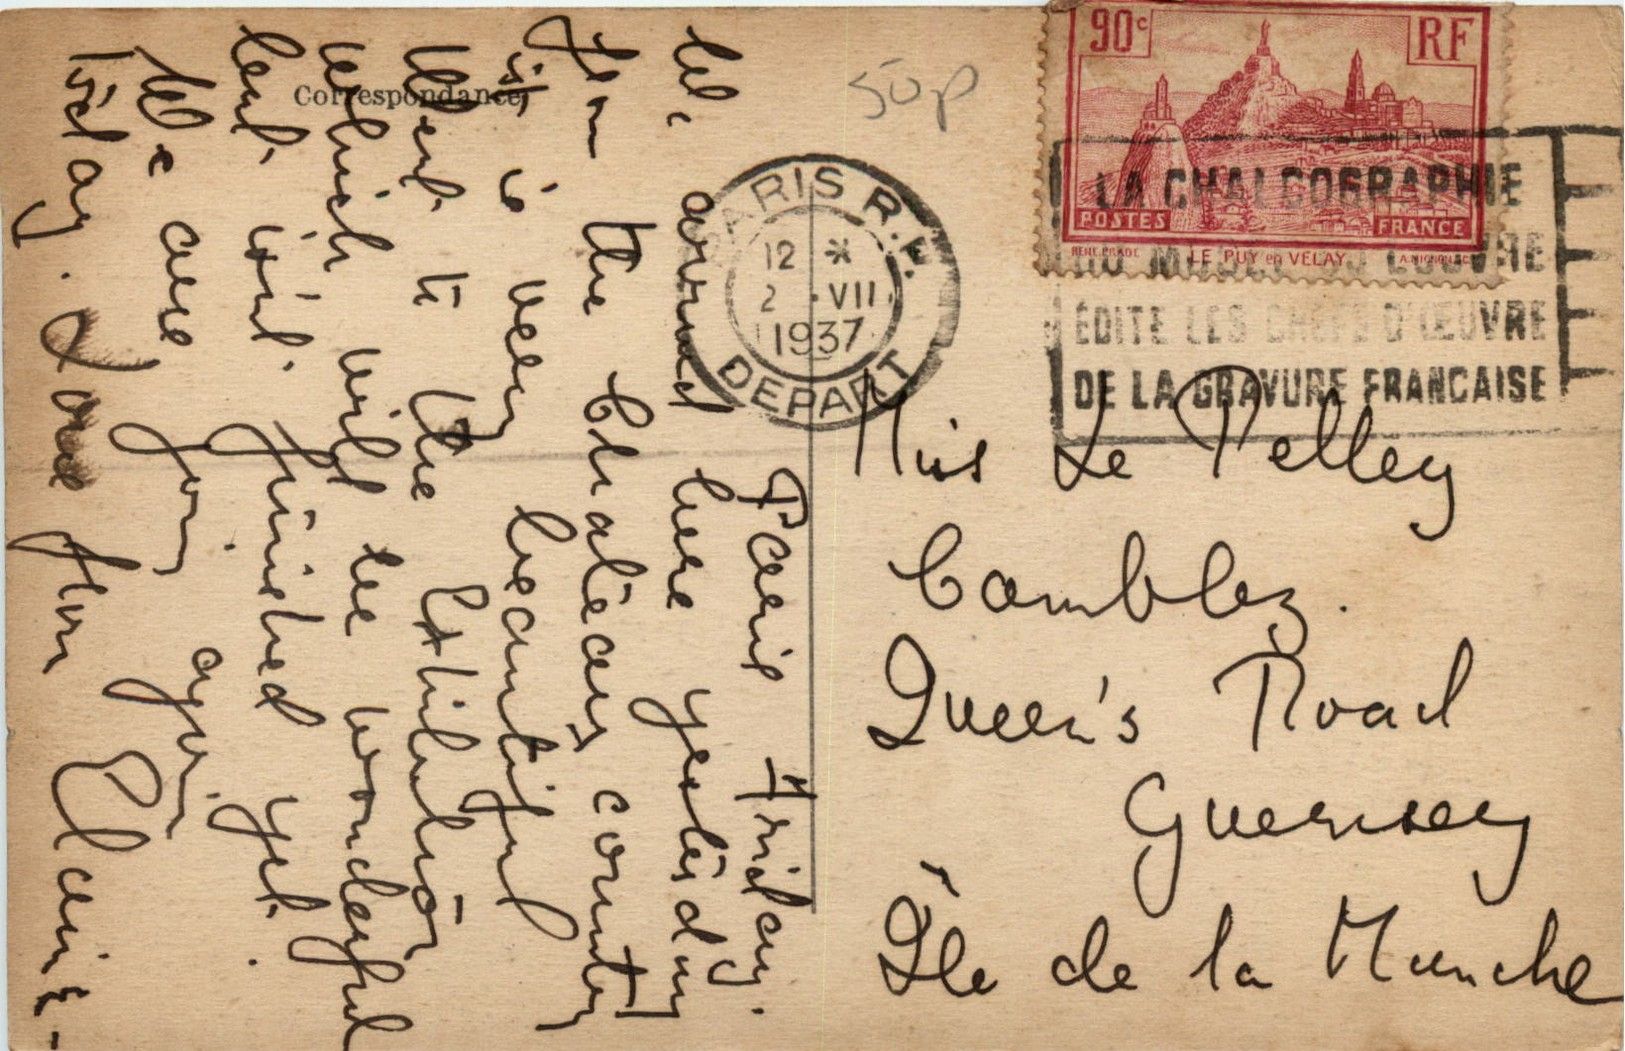 Correspondance
Paris Friday.
We arrived here yesterday
from the Chateaux country
it is very beautiful
Went to the Exhibition
which will be wonderful
but isn't finished yet.
We are going again
today. Love from Elaine -
50p
90c RF
POSTES FRANCE
LE PUY en VELAY
PARIS R.P.
12 *
2 VII
1937
DEPART
LA CHALCOGRAPHIE
DU MUSEE DU LOUVRE
ÉDITE LES CHEFS D'ŒUVRE
DE LA GRAVURE FRANCAISE
Miss Le Pelley
Camblez.
Queen's Road
Guernsey
Île de la Manche